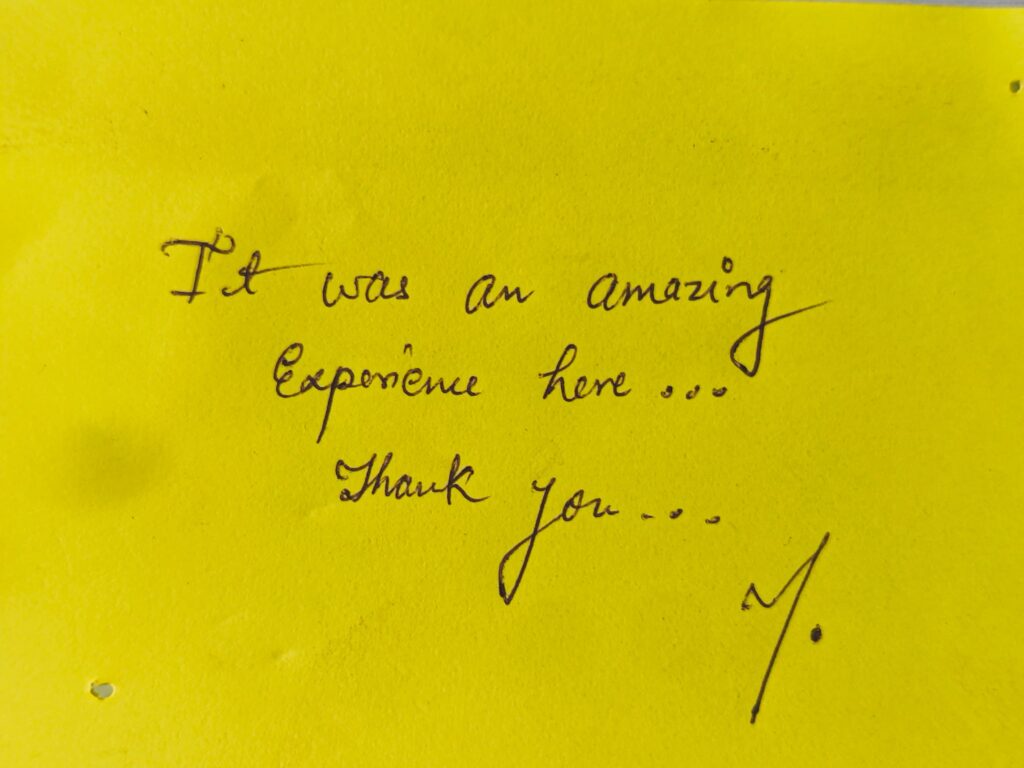 It was an amazing
Experience here...
Thank you...
Y.